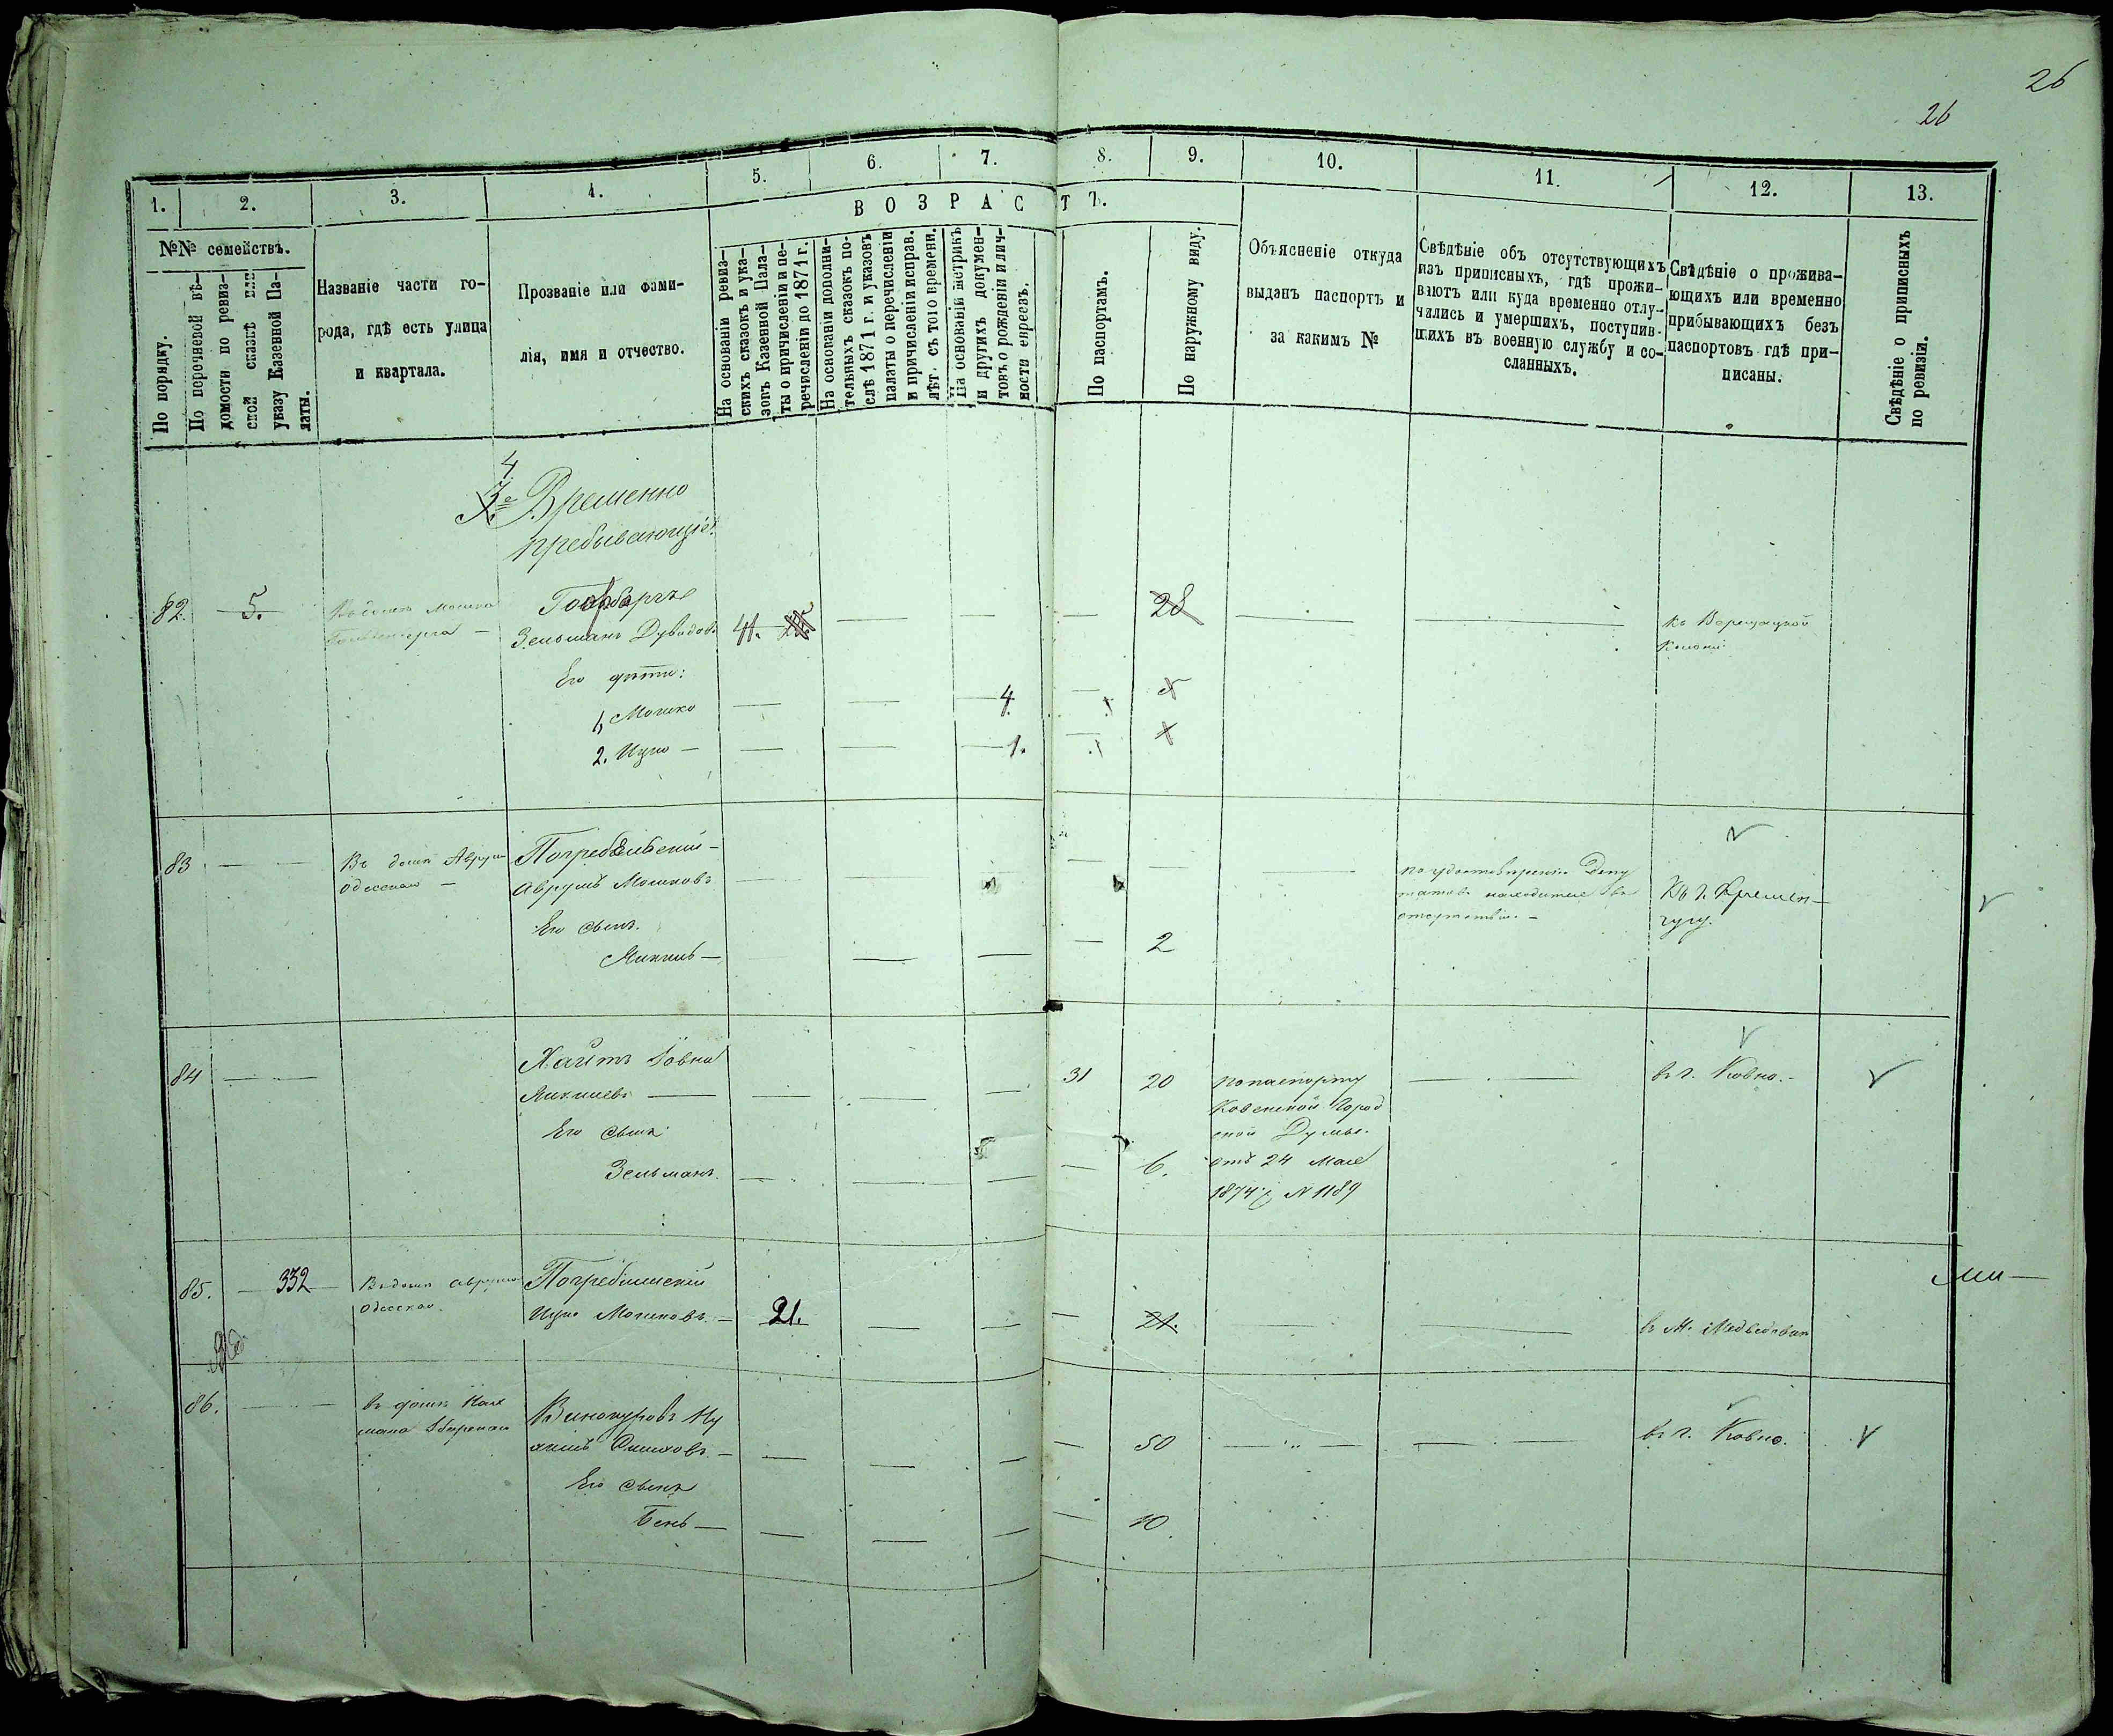 26
26
1.
2.
3.
4.
5.
6.
7.
8.
9.
10.
11.
12.
13.
№№ семействъ.
По порядку.
По перечневой вѣ-
домости по ревиз-
ской сказкѣ или
указу Казенной Па-
латы.
Названіе части го-
рода, гдѣ есть улица
и квартала.
Прозваніе или фами-
лія, имя и отчество.
ВОЗРАСТЪ.
На основаніи ревиз-
скихъ сказокъ и ука-
зовъ Казенной Пала-
ты о причисленіи и пе-
речисленіи до 1871 г.
На основаніи дополни-
тельныхъ сказокъ по-
слѣ 1871 г. и указовъ
палаты о перечисленіи
и причисленіи исправ.
лѣт. съ того времени.
На основаніи метрикъ
и другихъ докумен-
товъ о рожденіи и лич-
ности евреевъ.
По паспортамъ.
По наружному виду.
Объясненіе откуда
выданъ паспортъ и
за какимъ №
Свѣдѣніе объ отсутствующихъ
изъ приписныхъ, гдѣ прожи-
ваютъ или куда временно отлу-
чились и умершихъ, поступив-
шихъ въ военную службу и со-
сланныхъ.
Свѣдѣніе о прожива-
ющихъ или временно
прибывающихъ безъ
паспортовъ гдѣ при-
писаны.
Свѣдѣніе о приписныхъ
по ревизіи.
4
3е Временно
пребывающіе.
82. 5. Въ домѣ Мошка
Зельманъ Дувидовъ 41. 28
Къ
Его дѣти:
1, Мошко 4
2. Ицко 1.
83 Въ домѣ Аврума
Одесскаго
Аврумъ Мошковъ
по удостовѣренію Депу
татовъ находится въ
отсутствіи.
Къ г. Кремен-
чугу.
Его сынъ.
Янкель 2
84 Хаитъ Іовна
Янкелевъ 31 20
по паспорту
Ковенской Город
ской Думы.
отъ 24 Мая
1874 г. № 1189
въ г. Ковно.
Его сынъ
Зельманъ. 6.
85. 332 Въ домѣ Аврума
Одесскаго.
Погребинскій
Ицко Мошковъ. 21. 21.
въ м. Медведовки
86. въ домѣ
Винокуровъ Ну
химъ 50
въ г. Ковно.
Его сынъ
Бень 10.